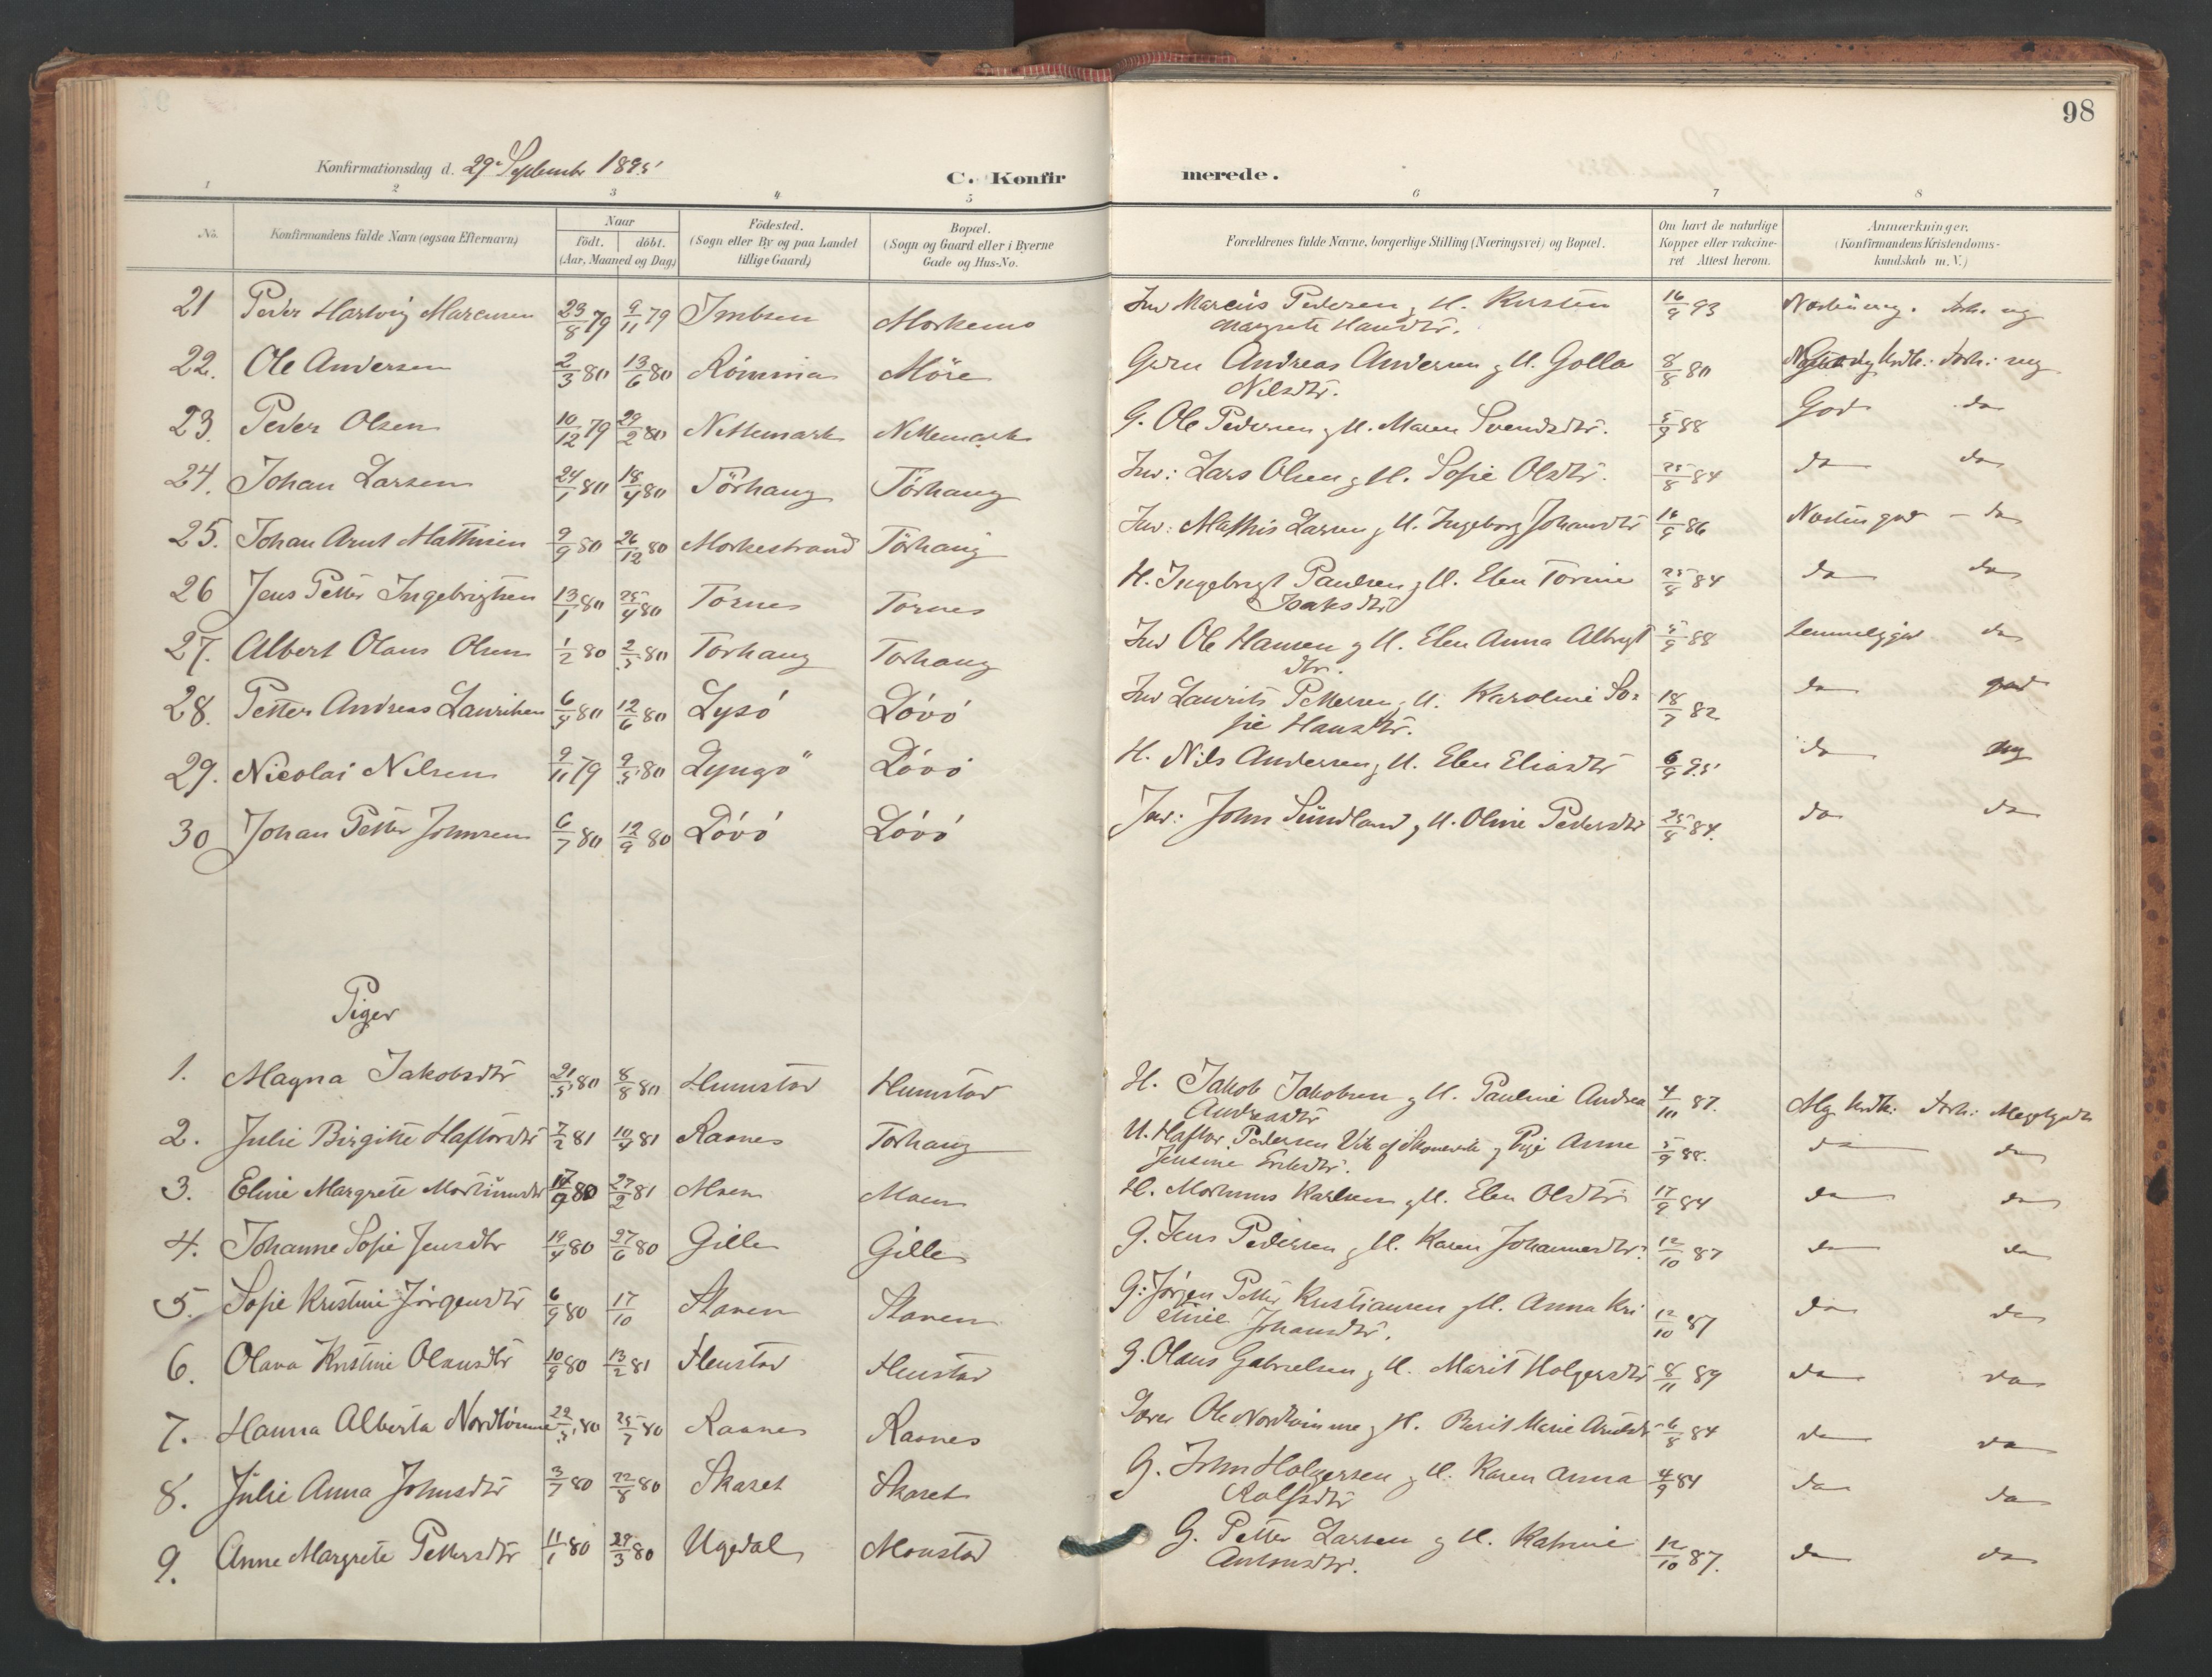 98
Konfirmationsdag d. 29de September 1895
C. Konfirmerede.
1 2 3 4 5 6 7 8
No. Konfirmandens fulde Navn (ogsaa Efternavn) Naar födt. döbt. (Aar, Maaned og Dag) Födested. (Sogn eller By og paa Landet tillige Gaard) Bopæl. (Sogn og Gaard eller i Byerne Gade og Hus-No. Forældrenes fulde Navne, borgerlige Stilling (Næringsvei) og Bopæl. Om havt de naturlige Kopper eller vakcineret Attest herom. Anmærkninger. (Konfirmandens Kristendomskundskab m. V.)
21 Peder Hartvig Marcusen 23/8 79 9/11 79 Morkemo Inds Marcus Pedersen g M. Kirsten Margrete Hansdtr. 16/9 93
22. Ole Andersen 2/3 80 13/6 80 Römmia Möre Andreas Andersen g M. Golla Nilsdtr. 8/8 80
23. Peder Olsen 10/12 79 29/2 80 Nittemark Nittemark G. Ole Pedersen g M. Maren Svendsdtr. 5/9 88 God do
24. Johan Larsen 24/1 80 18/4 80 Törhaug Törhaug Ind: Lars Olsen g M. Sofie Olsdtr. 25/8 84 do do
25. Johan Arnt Mathisen 9/9 80 26/12 80 Morkestrand Törhaug Ind: Mathis Larsen g M. Ingeborg Johansdtr 16/9 86 Nesten god - do
26 Jens Petter Ingebrigtsen 13/1 80 25/4 80 Tornes Tornes H. Ingebrigt Paulsen g M. Elen Torine Isaksdtr 25/8 84 do do
27. Albert Olaus Olsen 1/2 80 2/5 80 Torhaug Torhaug Ind Ole Hansen g M. Elen Anna Albrigt dtr. 5/9 88 Temmelig god do
28. Petter Andreas Lauritsen 6/4 80 12/6 80 Lysö Lövö Ind Laurits Pettersen g M. Karoline So= fie Hansdtr. 18/7 82 do god
29. Nicolai Nilsen 9/11 79 9/5 80 Lyngö Lövö H. Nils Andersen g M. Elen Eliasdtr 6/9 95 do mg
30 Johan Petter Johnsen 6/7 80 12/9 80 Lövö Lövö Ind: John Sundland g M. Oline Pedersdtr 25/8 84. do do
Piger
1. Magna Jakobsdtr 21/5 80 8/8 80 Hunstad Hunstad H. Jakob Jakobsen g M. Pauline Andrea Andreasdtr 4/10 87. Mg kndk: forh: Meget godt
2. Julie Birgitte Haftorsdtr 7/2 81 10/4 81 Raanes Torhaug U. Haftor Pedersen Vik g Pige Anne Jensine Eriksdtr. 5/9 88. do do
3. Eline Margrete Mortinusdtr 17/9 80 27/2 81 Moen Moen H. Mortinus Karlsen g M. Elen Olsdtr 17/9 84 do do
4. Johanne Sofie Jensdtr 19/4 80 27/6 80 Gille Gille G. Jens Pedersen g M. Karen Johannesdtr. 12/10 87 do do
5. Sofie Kristine Jörgensdtr 6/9 80 17/10 Staven Staven G: Jörgen Petter Kristiansen g M. Anna Kri stine Johansdtr. 12/10 87 do do
6. Olava Kristine Olausdtr 10/9 80 13/2 81 Hustad Hustad G. Olaus Gabrielsen g M. Marit Holgersdtr 8/11 89 do do
7. Hanna Alberta Nordtömme 22/5 80 25/7 80 Raanes Raanes Lærer Ole Nordtömme g M. Berit Marie Arntsdtr 6/8 84 do do
8. Julie Anna Johnsdtr 3/7 80 22/8 80 Skaset Skaset G. John Holgersen g M. Karen Anna Rolfsdtr 4/9 84 do do
9. Anne Margrete Pettersdtr 11/1 80 29/3 80 Ugedal Monstad G. Petter Larsen g M. Katrine Antonsdtr. 12/10 87. do do